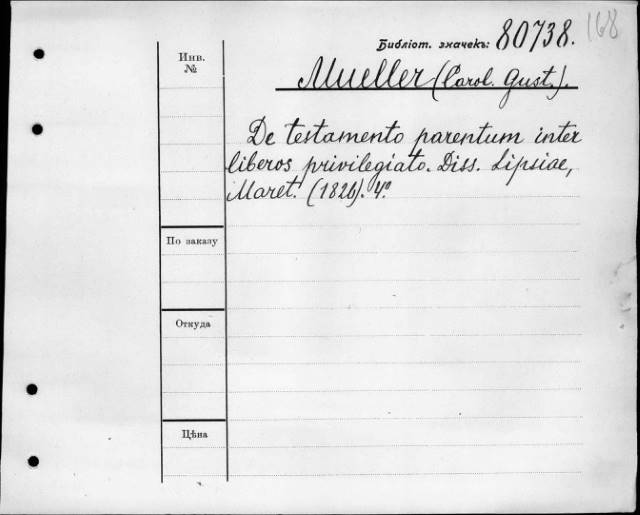 168
Библіот. значекъ: 80738.
Инв.
№
Mueller (Carol. Gust.).
De testamento parentum inter
liberos privilegiato. Diss. Lipsiae,
Maret. (1826). 4º
По заказу
Откуда
Цѣна